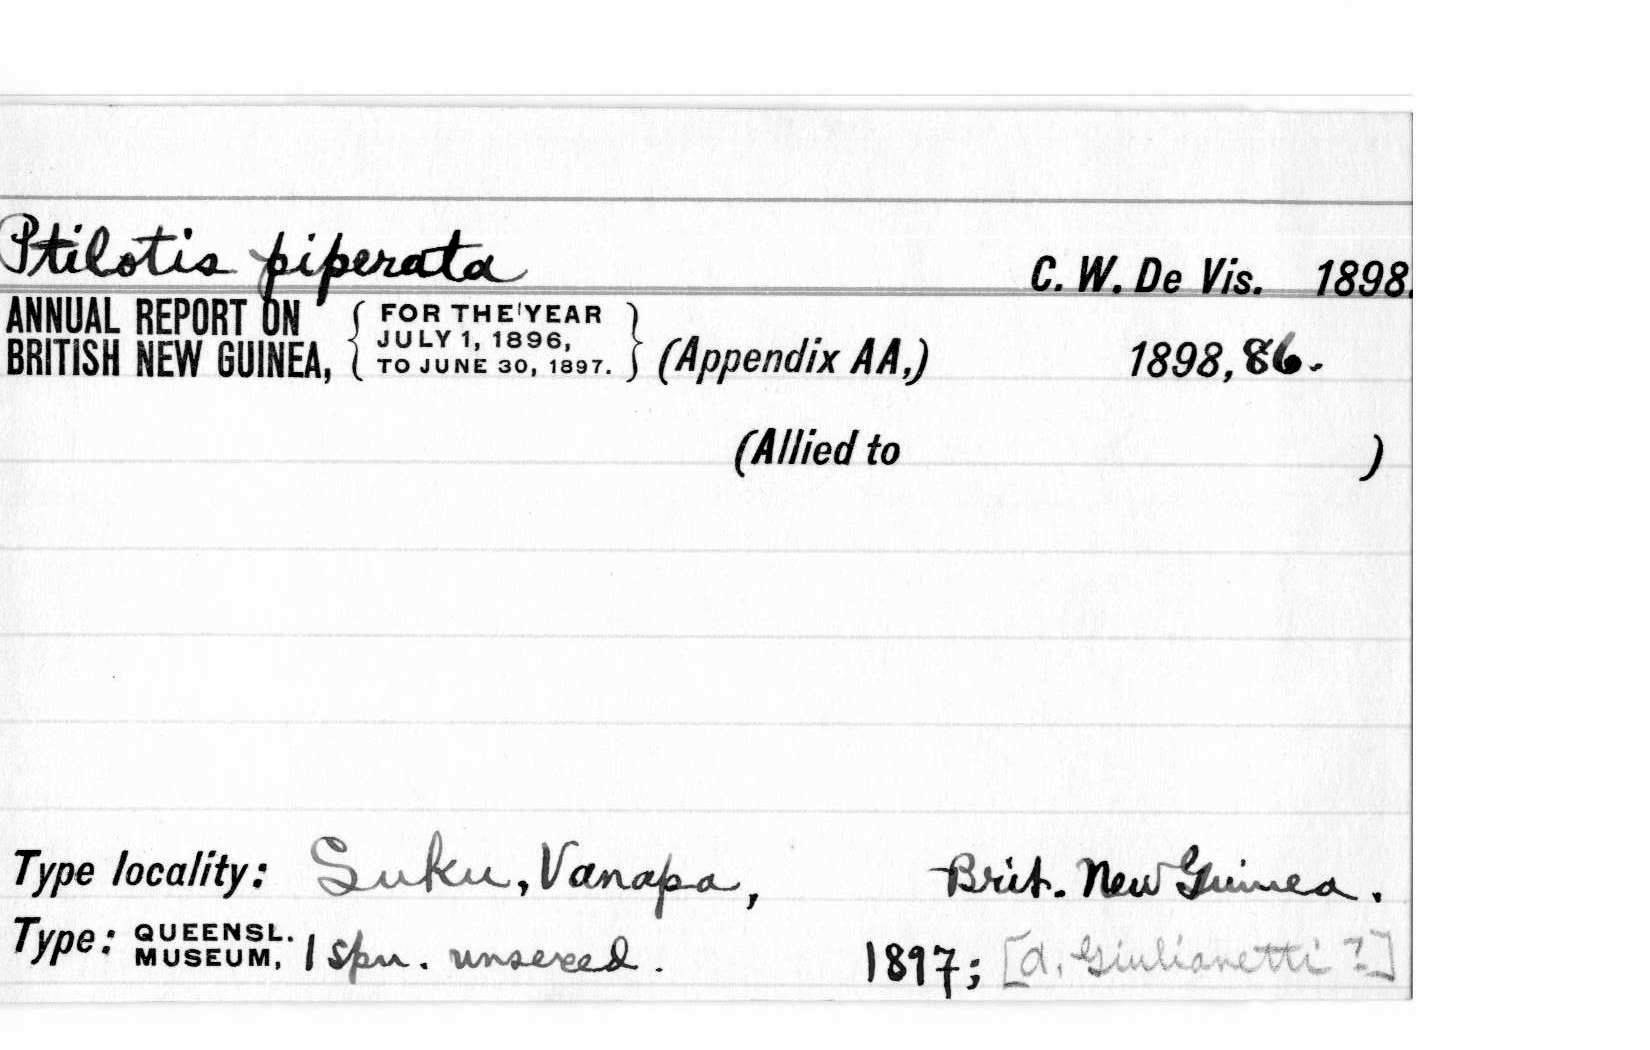 Ptilotis piperata C. W. De Vis. 1898.
ANNUAL REPORT ON BRITISH NEW GUINEA, { FOR THE YEAR JULY 1, 1896, TO JUNE 30, 1897. } (Appendix AA,) 1898, 86.
(Allied to )
Type locality: Suku, Vanapa, Brit. New Guinea.
Type: QUEENSL. MUSEUM, 1 spn. unsexed. 1897; [A. Giulianetti ?]